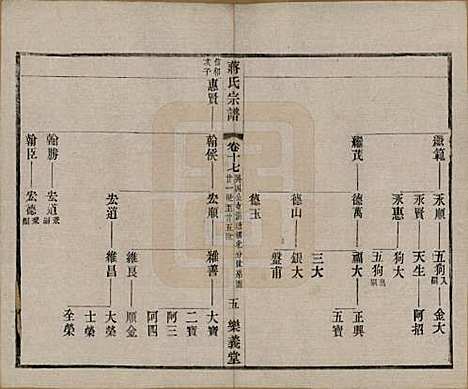 鎡範
永順
五狗
金大
永賢
天生
阿招
永惠
狗大
耀茂
德萬
五狗
福大
正興
三大
五寶
德山
銀大
德玉
盤甫
蔣氏宗譜
卷十七
五
樂義堂
信和
次子
惠賢
翰侯
宏順
維善
大寶
二寶
阿三
阿四
宏道
維良
順金
維昌
大榮
士榮
全榮
翰勝
宏道
翰臣
宏德